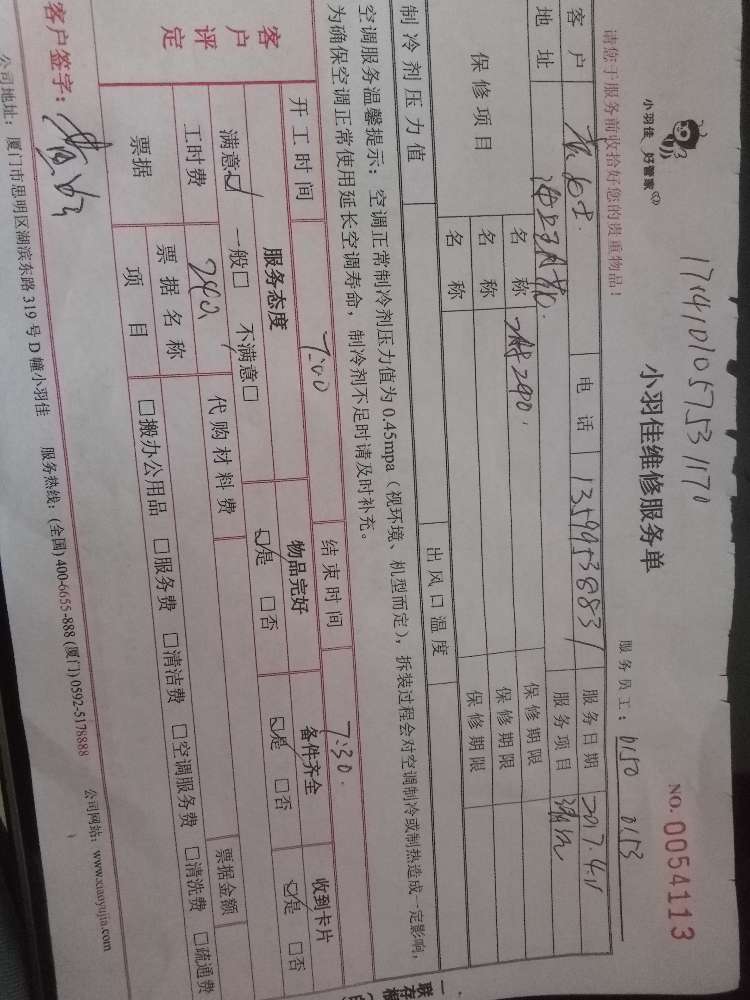 小羽佳 好管家
17410105753170
小羽佳维修服务单
NO. 0054113
请您于服务前收拾好您的贵重物品！
服务员工：0150 0153
客户 电话 13599538831 服务日期 2017.4.11
地址 服务项目
保修项目 名称 保修期限
名称 保修期限
名称 保修期限
制冷剂压力值 出风口温度
空调服务温馨提示：空调正常制冷剂压力值为0.45mpa（视环境、机型而定），拆装过程会对空调制冷或制热造成一定影响，
为确保空调正常使用延长空调寿命，制冷剂不足时请及时补充。
开工时间 7:00 结束时间 7:30.
客户评定
服务态度 物品完好 备件齐全 收到卡片
满意☑ 一般□ 不满意□ ☑是 □否 ☑是 □否 ☑是 □否
工时费 代购材料费
票据 票据名称 票据金额
项目 □搬办公用品 □服务费 □清洁费 □空调服务费 □清洗费 □疏通费
客户签字：
公司地址：厦门市思明区湖滨东路319号D幢小羽佳 服务热线：(全国)400-6655-888 (厦门)0592-5178888 公司网站：www.xiaoyujia.com